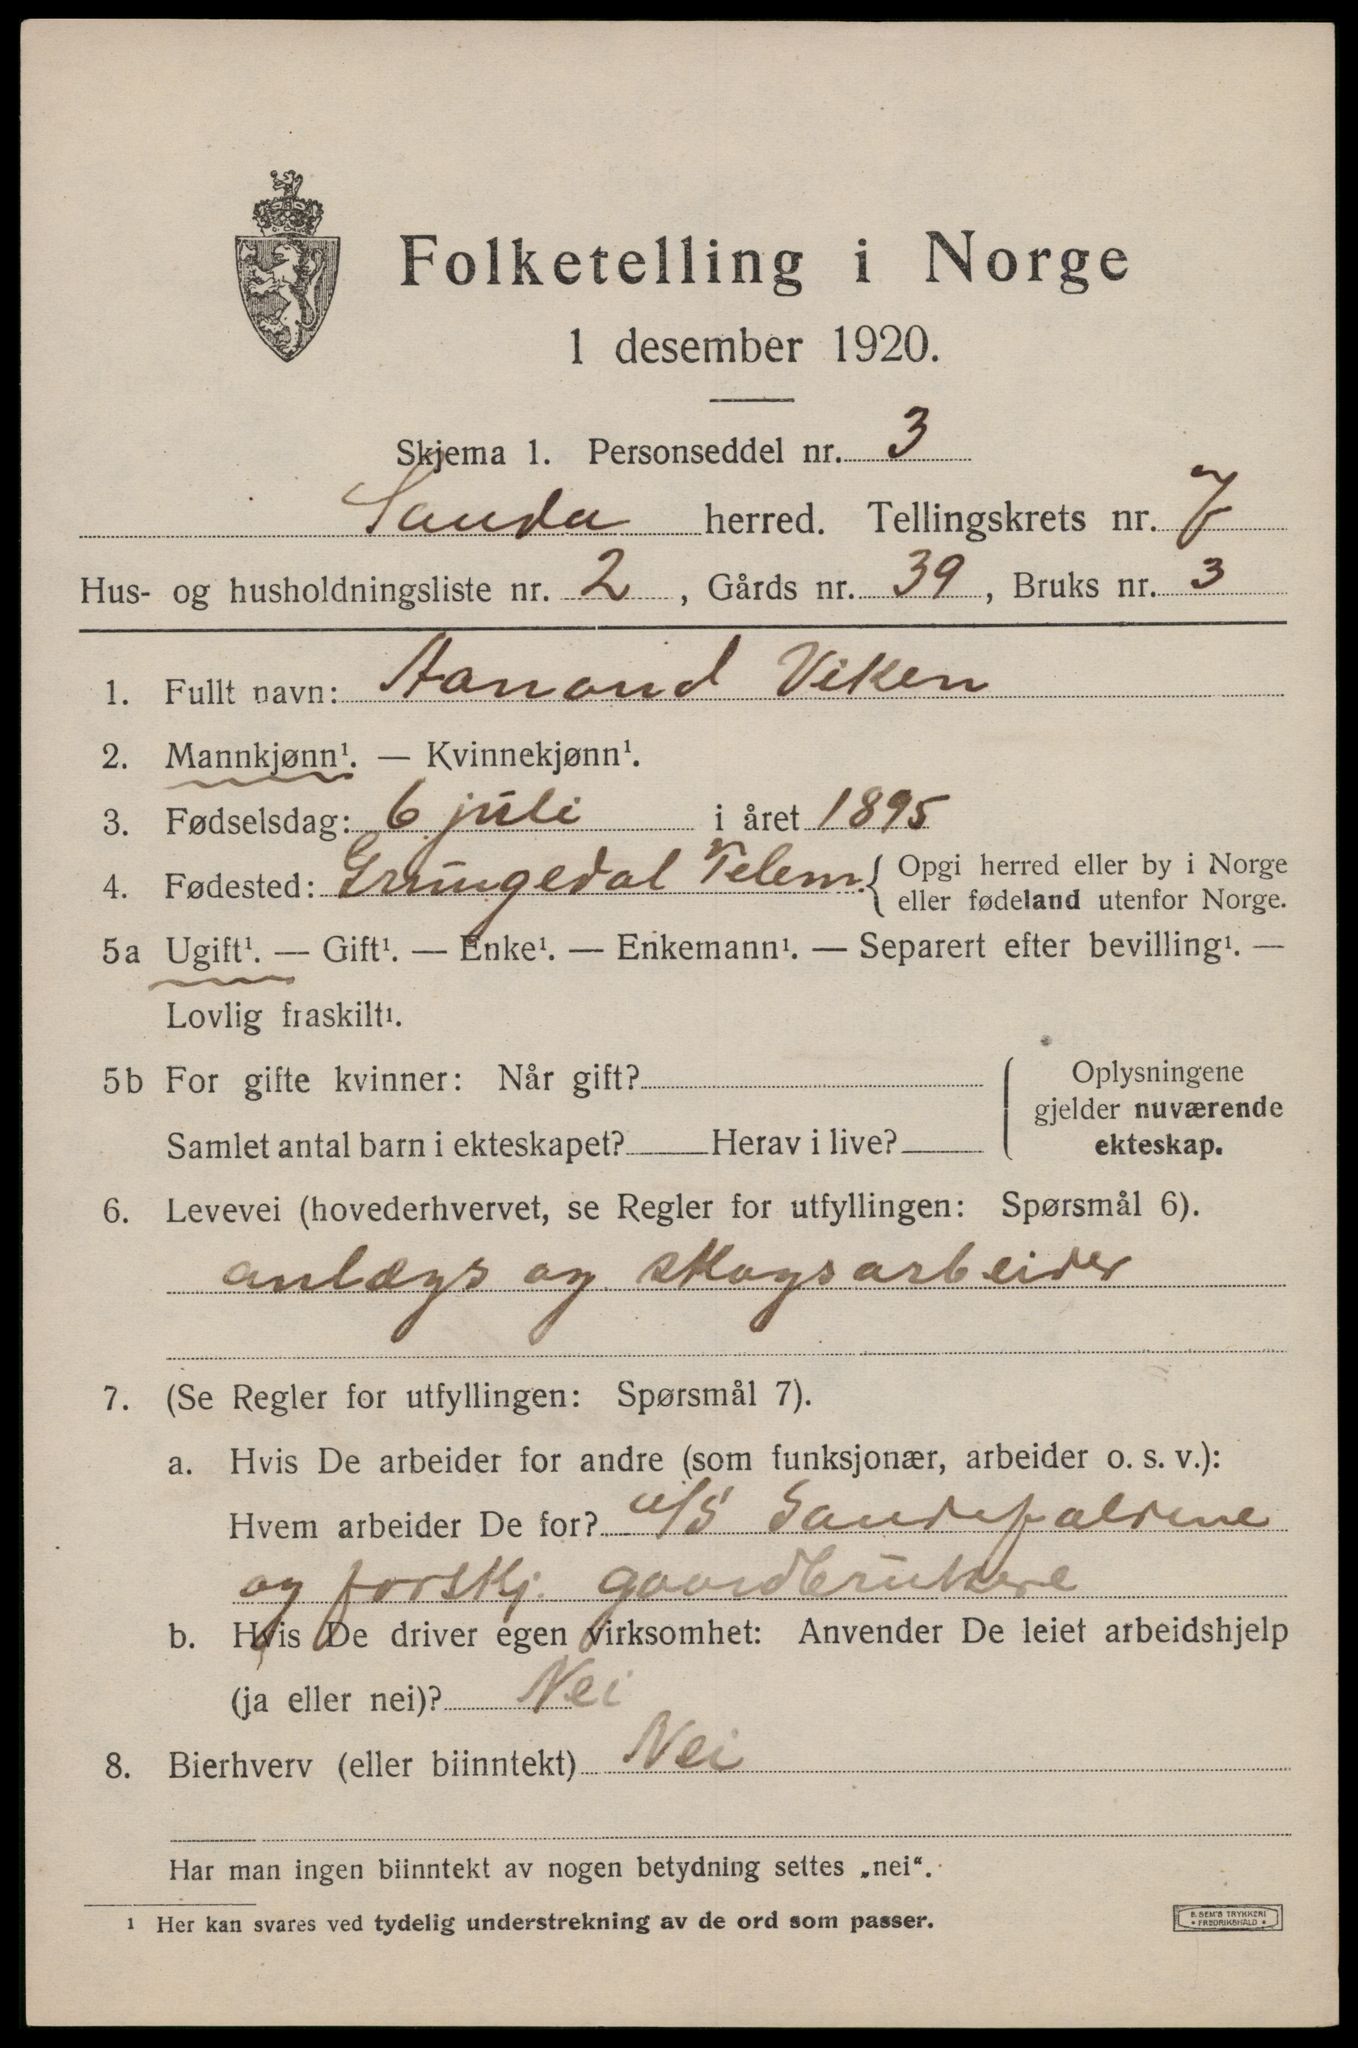 Folketelling i Norge
1 desember 1920.
Skjema 1. Personseddel nr. 3
Sauda herred. Tellingskrets nr. 7
Hus- og husholdningsliste nr. 2, Gårds nr. 39, Bruks nr. 3
1. Fullt navn: Aanond Viken
2. Mannkjønn¹. — Kvinnekjønn¹.
3. Fødselsdag: 6 juli i året 1895
4. Fødested: Grungedal Telem. { Opgi herred eller by i Norge
eller fødeland utenfor Norge.
5a Ugift¹. — Gift¹. — Enke¹. — Enkemann¹. — Separert efter bevilling¹. —
Lovlig fraskilt¹.
5b For gifte kvinner: Når gift?
Samlet antal barn i ekteskapet? Herav i live?
Oplysningene
gjelder nuværende
ekteskap.
6. Levevei (hovederhvervet, se Regler for utfyllingen: Spørsmål 6).
anlægs og skogsarbeider
7. (Se Regler for utfyllingen: Spørsmål 7).
a. Hvis De arbeider for andre (som funksjonær, arbeider o. s. v.):
Hvem arbeider De for? a/S Saudefaldene
og forskj. gaardbrukere
b. Hvis De driver egen virksomhet: Anvender De leiet arbeidshjelp
(ja eller nei)? Nei
8. Bierhverv (eller biinntekt) Nei
Har man ingen biinntekt av nogen betydning settes „nei“.
¹ Her kan svares ved tydelig understrekning av de ord som passer.
E. SEM'S TRYKKERI
• FREDRIKSHALD •